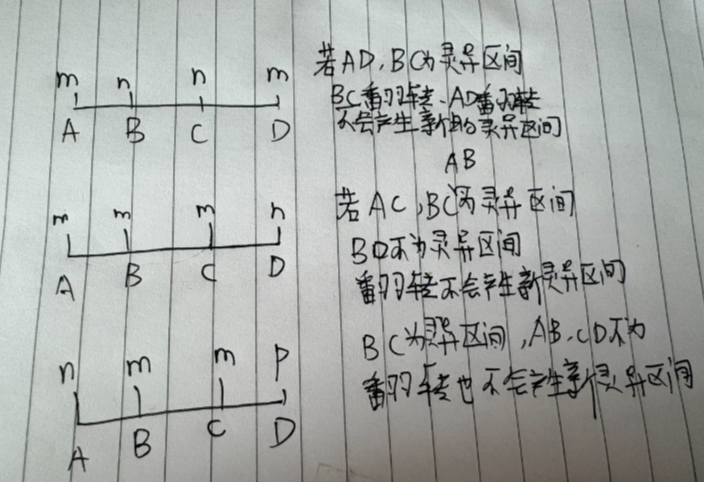 m n n m
A B C D
若AD,BC为灵异区间
BC翻转、AD翻转
不会产生新的灵异区间
AB
m m m n
A B C D
若AC,BC为灵异区间
BD不为灵异区间
翻转不会产生新灵异区间
n m m p
A B C D
BC为灵异区间,AB、CD不为
翻转也不会产生新灵异区间